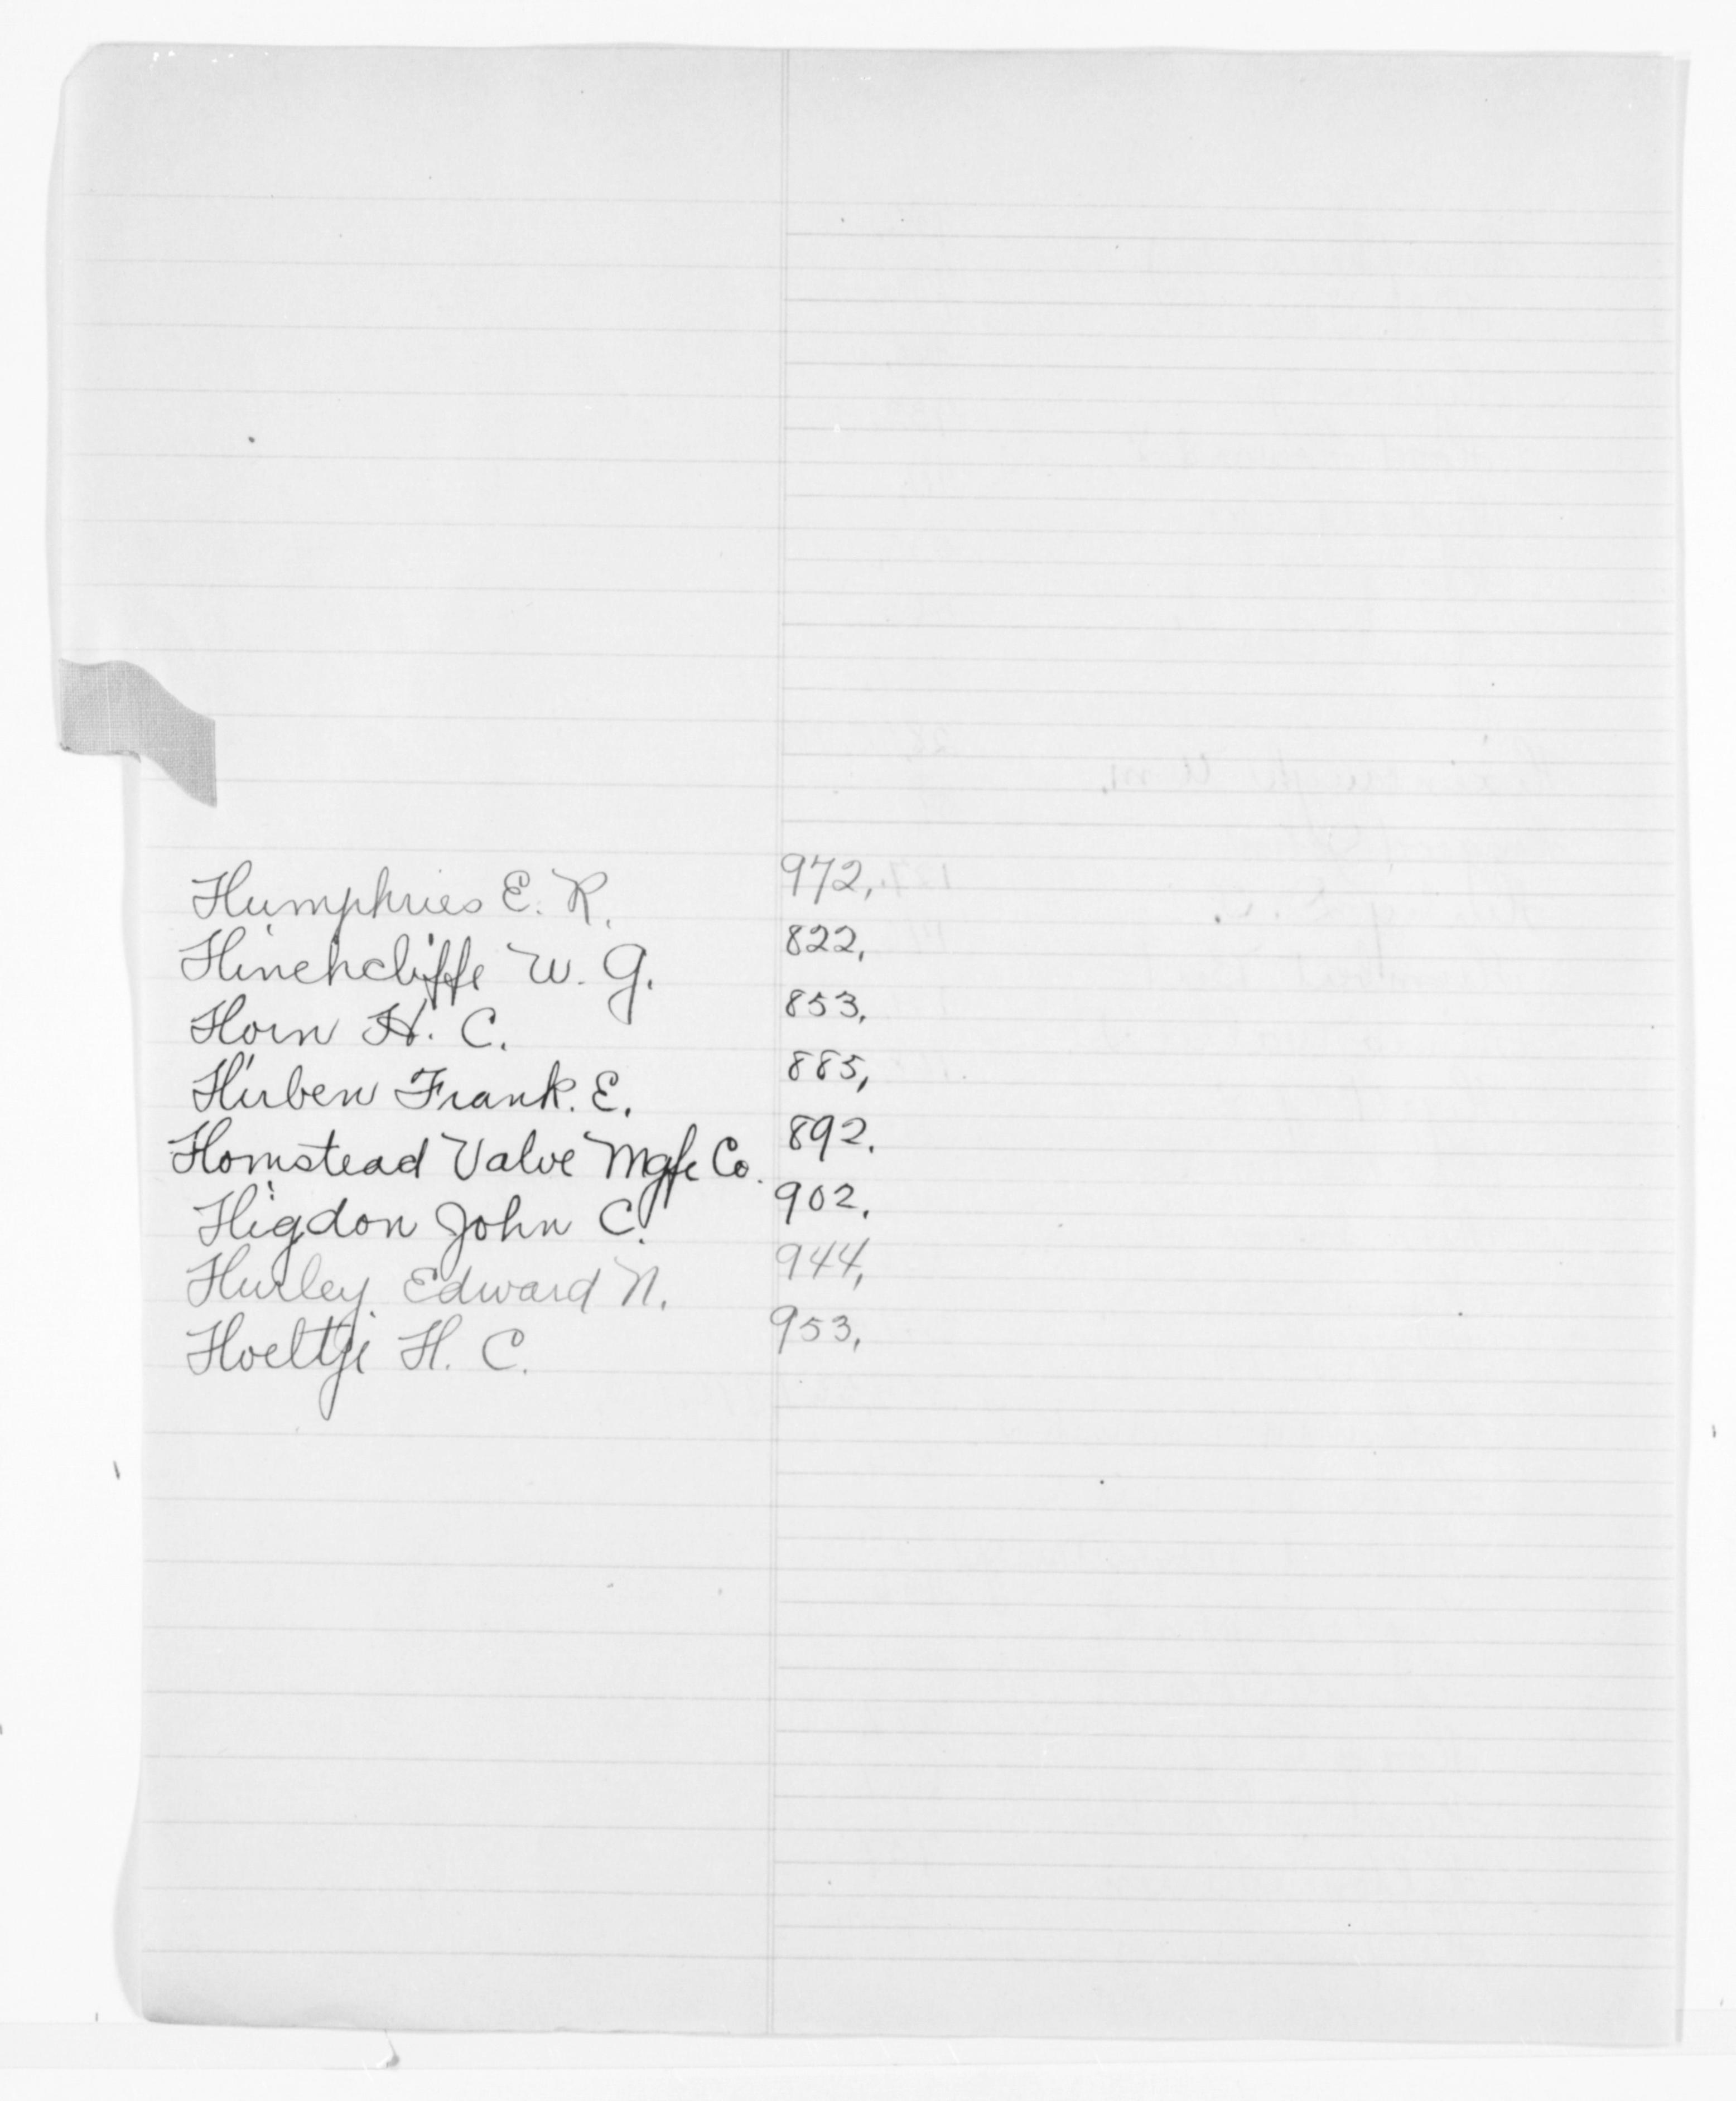 Humphries E. R. 972,
Hinchcliffe W. G. 822,
Horn H. C. 853,
Hirben Frank. E. 885,
Homstead Valve Mgfc Co. 892.
Higdon John C. 902.
Hurley. Edward N. 944,
Hoeltje H. C. 953,